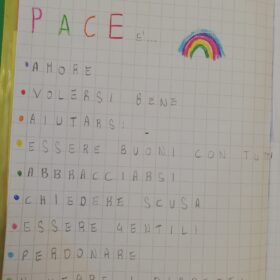 PACE E'...
AMORE
VOLERSI BENE
AIUTARSI
ESSERE BUONI CON
ABBRACCIARSI
CHIEDERE SCUSA
ESSERE GENTILI
PERDONARE